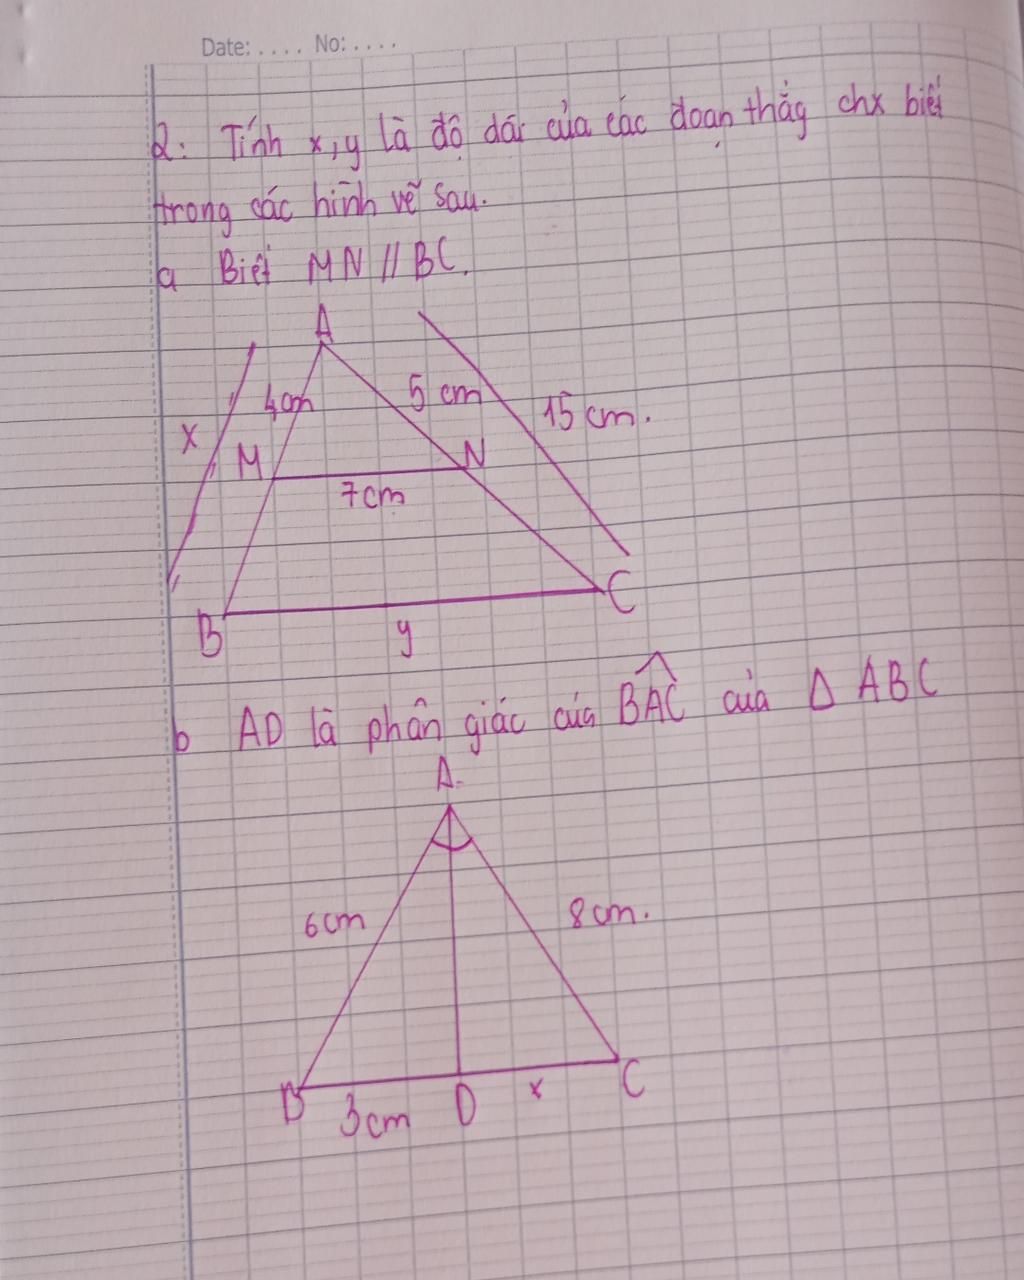 Date: .... No: ....
2: Tính x, y là độ dài của các đoạn thẳg chx biết
trong các hình vẽ sau.
a Biết MN // BC.
A
4cm 5 cm 15 cm.
x
M N
7cm
B C
y
b AD là phân giác của BAC của Δ ABC
A.
6cm 8cm.
B 3cm D x C